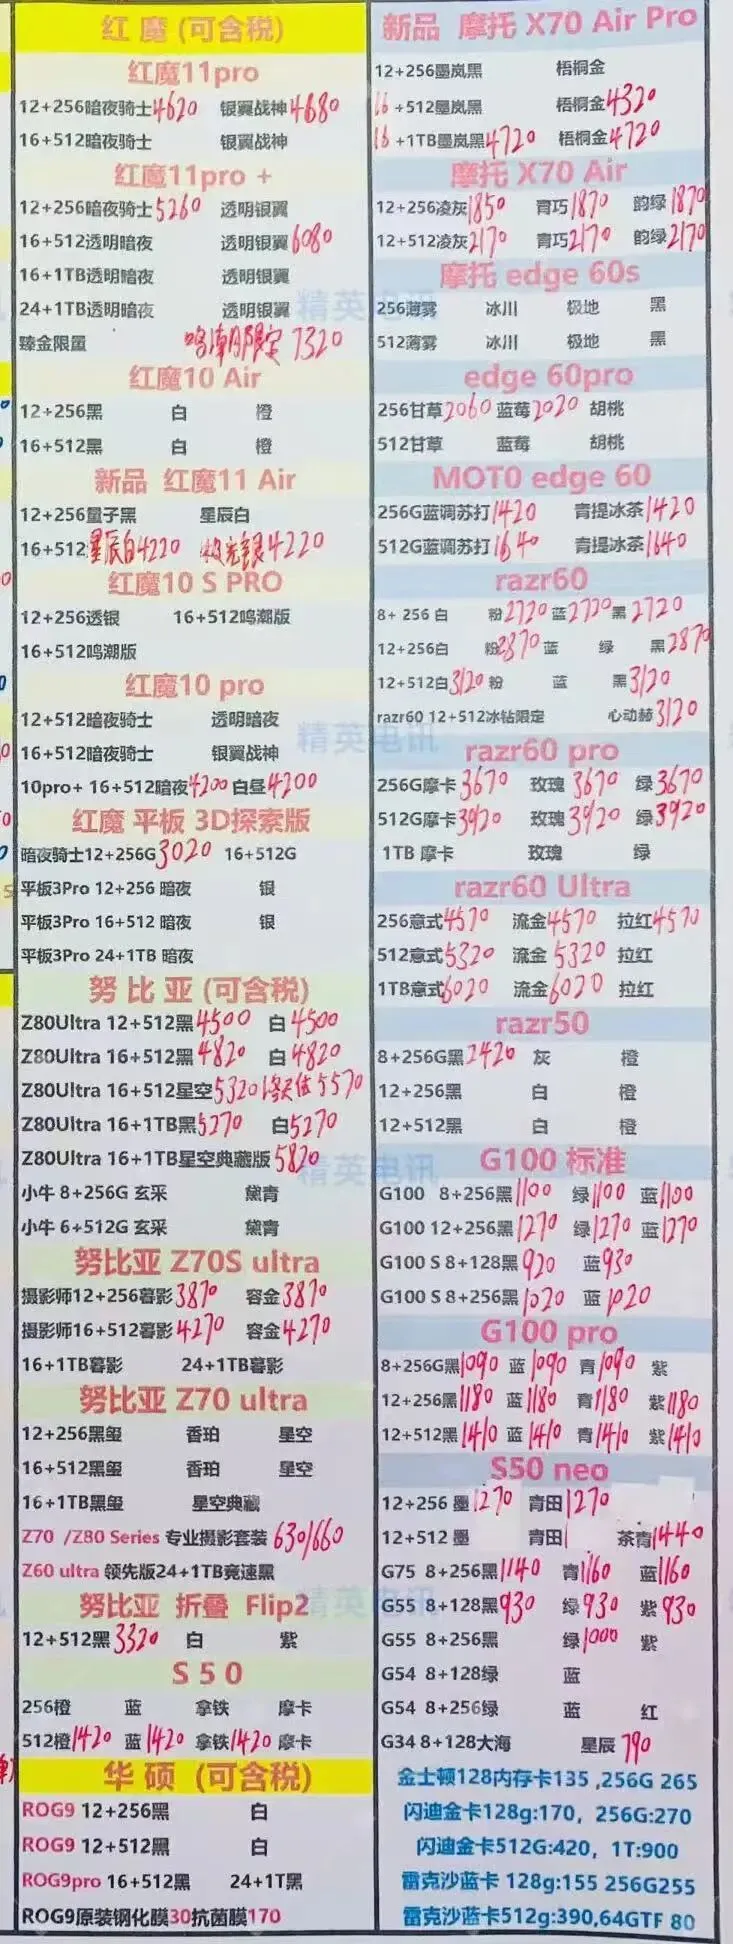 红 魔 (可含税)
红魔11pro
12+256暗夜骑士4620 银翼战神4680
16+512暗夜骑士 银翼战神
红魔11pro +
12+256暗夜骑士5260 透明银翼
16+512透明暗夜 透明银翼6080
16+1TB透明暗夜 透明银翼
24+1TB透明暗夜 透明银翼
臻金限量 鸣潮限定 7320
红魔10 Air
12+256黑 白 橙
16+512黑 白 橙
新品 红魔11 Air
12+256量子黑 星辰白
16+512星辰白4220 极光银4220
红魔10 S PRO
12+256透银 16+512鸣潮版
16+512鸣潮版
红魔10 pro
12+512暗夜骑士 透明暗夜
16+512暗夜骑士 银翼战神
10pro+ 16+512暗夜4200 白昼4200
红魔 平板 3D探索版
暗夜骑士12+256G3020 16+512G
平板3Pro 12+256 暗夜 银
平板3Pro 16+512 暗夜 银
平板3Pro 24+1TB 暗夜
努 比 亚 (可含税)
Z80Ultra 12+512黑4500 白4500
Z80Ultra 16+512黑4820 白4820
Z80Ultra 16+512星空5320 5570
Z80Ultra 16+1TB黑5270 白5270
Z80Ultra 16+1TB星空典藏版5820
小牛 8+256G 玄采 黛青
小牛 6+512G 玄采 黛青
努比亚 Z70S ultra
摄影师12+256暮影3870 容金3870
摄影师16+512暮影4270 容金4270
16+1TB暮影 24+1TB暮影
努比亚 Z70 ultra
12+256黑玺 香珀 星空
16+512黑玺 香珀 星空
16+1TB黑玺 星空典藏
Z70 /Z80 Series 专业摄影套装 630/660
Z60 ultra 领先版24+1TB竞速黑
努比亚 折叠 Flip2
12+512黑3320 白 紫
S 5 0
256橙 蓝 拿铁 摩卡
512橙1420 蓝1420 拿铁1420 摩卡
华 硕 (可含税)
ROG9 12+256黑 白
ROG9 12+512黑 白
ROG9pro 16+512黑 24+1T黑
ROG9原装钢化膜30抗菌膜170
新品 摩托 X70 Air Pro
12+256墨岚黑 梧桐金
16+512墨岚黑 梧桐金4320
16+1TB墨岚黑4720 梧桐金4720
摩托 X70 Air
12+256凌灰1850 青巧1870 韵绿1870
12+512凌灰2170 青巧2170 韵绿2170
摩托 edge 60s
256薄雾 冰川 极地 黑
512薄雾 冰川 极地 黑
edge 60pro
256甘草2060 蓝莓2020 胡桃
512甘草 蓝莓 胡桃
MOTO edge 60
256G蓝调苏打1420 青提冰茶1420
512G蓝调苏打1640 青提冰茶1640
razr60
8+ 256 白 粉2720 蓝2720 黑2720
12+256白 粉2870 蓝 绿 黑2870
12+512白3120 粉 蓝 黑3120
razr60 12+512冰钻限定 心动赫3120
razr60 pro
256G摩卡3670 玫瑰3670 绿3670
512G摩卡3920 玫瑰3920 绿3920
1TB 摩卡 玫瑰 绿
razr60 Ultra
256意式4570 流金4570 拉红4570
512意式5320 流金5320 拉红
1TB意式6020 流金6020 拉红
razr50
8+256G黑2420 灰 橙
12+256黑 白 橙
12+512黑 白 橙
G100 标准
G100 8+256黑1100 绿1100 蓝1100
G100 12+256黑1270 绿1270 蓝1270
G100 S 8+128黑920 蓝930
G100 S 8+256黑1020 蓝1020
G100 pro
8+256G黑1090 蓝1090 青1090 紫
12+256黑1180 蓝1180 青1180 紫1180
12+512黑1410 蓝1410 青1410 紫1410
S50 neo
12+256 墨1270 青田1270
12+512 墨 青田 茶青1440
G75 8+256黑1140 青1160 蓝1160
G55 8+128黑930 绿930 紫930
G55 8+256黑 绿1000 紫
G54 8+128绿 蓝
G54 8+256绿 蓝 红
G34 8+128大海 星辰790
金士顿128内存卡135 ,256G 265
闪迪金卡128g:170, 256G:270
闪迪金卡512G:420, 1T:900
雷克沙蓝卡 128g:155 256G255
雷克沙蓝卡512g:390,64GTF 80
精英电讯
精英电讯
精英电讯
精英电讯